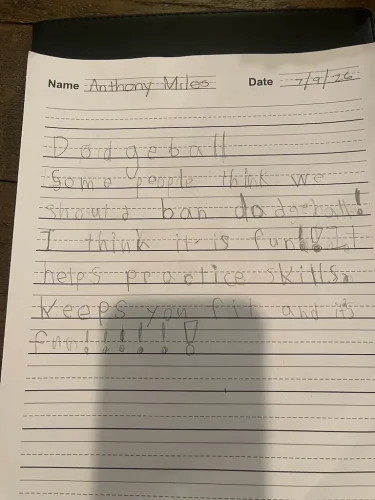 Name Anthony Miles Date 7/9/26
Dodgeball
Some people think we
should ban dodgeball!
I think it is fun!!! It
helps practice skills,
keeps you fit and it's
fun!!!!!!